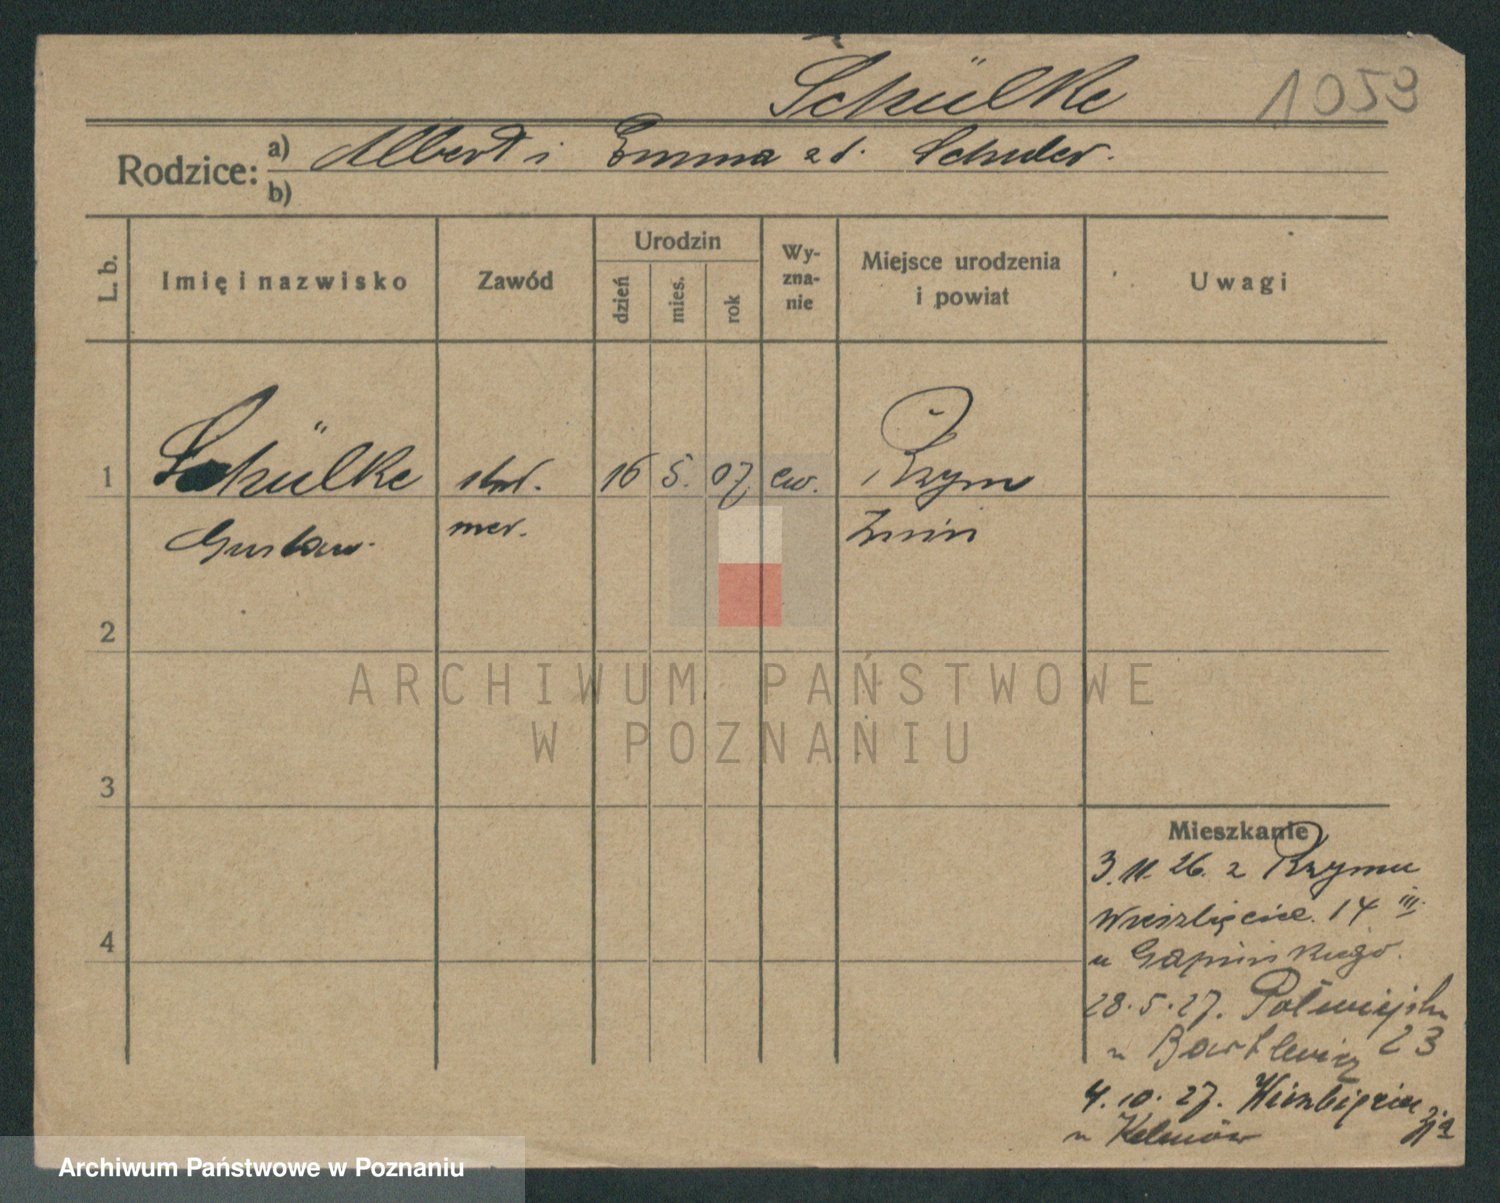 Schülke 1059
Rodzice: a) Albert i Emma z d. Schuler.
b)
L. b. Imię i nazwisko Zawód Urodzin dzień mies. rok Wy-zna-nie Miejsce urodzenia i powiat Uwagi
1 Schülke 16 5. 07. ew. Rzym
Gustaw. Żnin
2
ARCHIWUM PAŃSTWOWE
W POZNANIU
3
Mieszkanie
3.11.26. z Rzymu
Wierzbięcice. 14 III
4
u Gapińskiego.
28.5.27. Półwiejska
u 23
4.10.27. Wierzbięcice
u
Archiwum Państwowe w Poznaniu